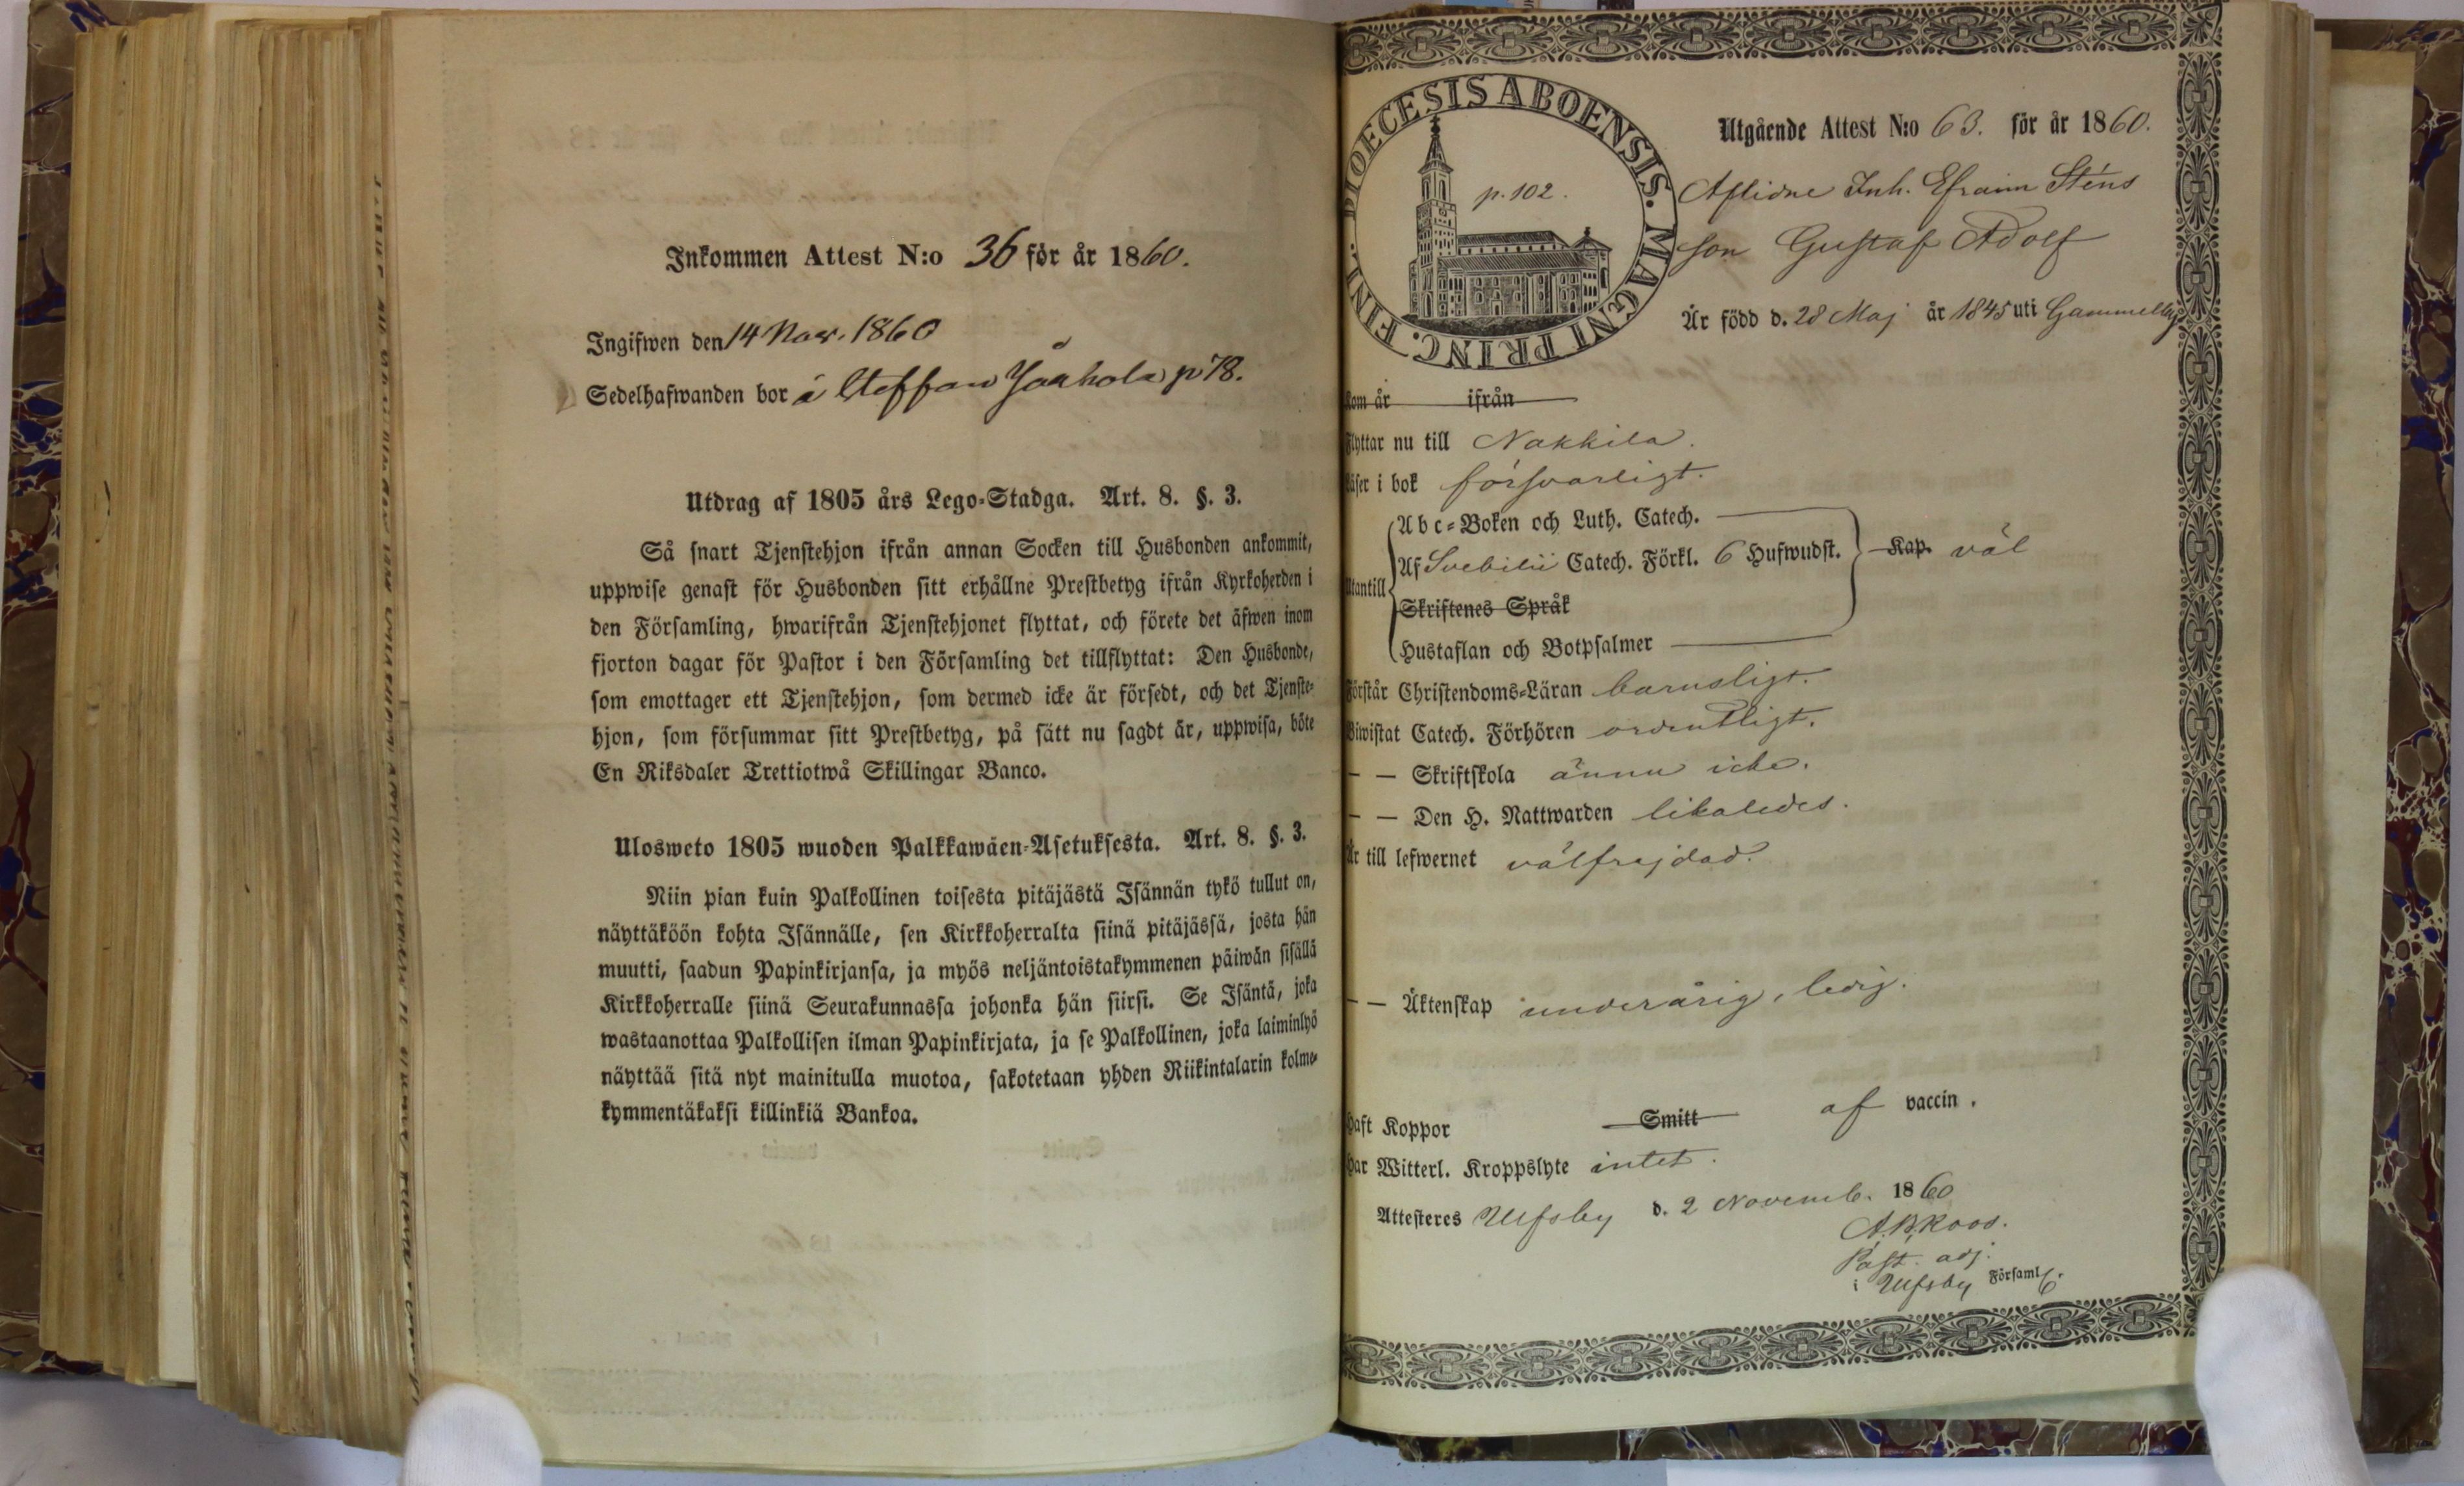 Inkommen Attest N:o 36 för år 1860.
Ingifwen den 14 Nov. 1860
Sedelhafwanden bor å Steffan Jåahola p 78.
Utdrag af 1805 års Lego-Stadga. Art. 8. §. 3.
Så snart Tjenstehjon ifrån annan Socken till Husbonden ankommit,
uppwise genast för Husbonden sitt erhållne Prestbetyg ifrån Kyrkoherden i
den Församling, hwarifrån Tjenstehjonet flyttat, och förete det äfwen inom
fjorton dagar för Pastor i den Församling det tillflyttat: Den Husbonde,
som emottager ett Tjenstehjon, som dermed icke är försedt, och det Tjenste-
hjon, som försummar sitt Prestbetyg, på sätt nu sagdt är, uppwisa, böte
En Riksdaler Trettiotwå Skillingar Banco.
Ulosweto 1805 wuoden Palkkawäen-Asetuksesta. Art. 8. §. 3.
Niin pian kuin Palkollinen toisesta pitäjästä Isännän tykö tullut on,
näyttäköön kohta Isännälle, sen Kirkkoherralta siinä pitäjässä, josta hän
muutti, saadun Papinkirjansa, ja myös neljäntoistakymmenen päiwän sisällä
Kirkkoherralle siinä Seurakunnassa johonka hän siirsi. Se Isäntä, joka
wastaanottaa Palkollisen ilman Papinkirjata, ja se Palkollinen, joka laiminlyö
näyttää sitä nyt mainitulla muotoa, sakotetaan yhden Riikintalarin kolme-
kymmentäkaksi killinkiä Bankoa.
DIOECESIS ABOENSIS. MAGNI PRINC. FINL.
p. 102.
Utgående Attest N:o 63. för år 1860.
Aflidne Inh. Efraim Sténs
son Gustaf Adolf
Är född d. 28 Maj år 1845 uti Gammelby
Kom år ifrån
Flyttar nu till Nakkila.
Läser i bok försvarligt.
Abc-Boken och Luth. Catech.
Utantill Af Svebilii Catech. Förkl. 6 Hufwudst. Kap. väl
Skriftenes Språk
Hustaflan och Botpsalmer
Förstår Christendoms-Läran barnsligt.
Biwistat Catech. Förhören ordentligt.
— — Skriftskola ännu icke.
— — Den H. Nattwarden likaledes.
Är till lefwernet välfrejdad.
— — Äktenskap underårig, ledig.
Haft Koppor Smitt af vaccin.
Har Witterl. Kroppslyte intet.
Attesteres Ulfsby d. 2 Novemb. 1860
A. B. Roos.
Past. adj.
i Ulfsby Församl.